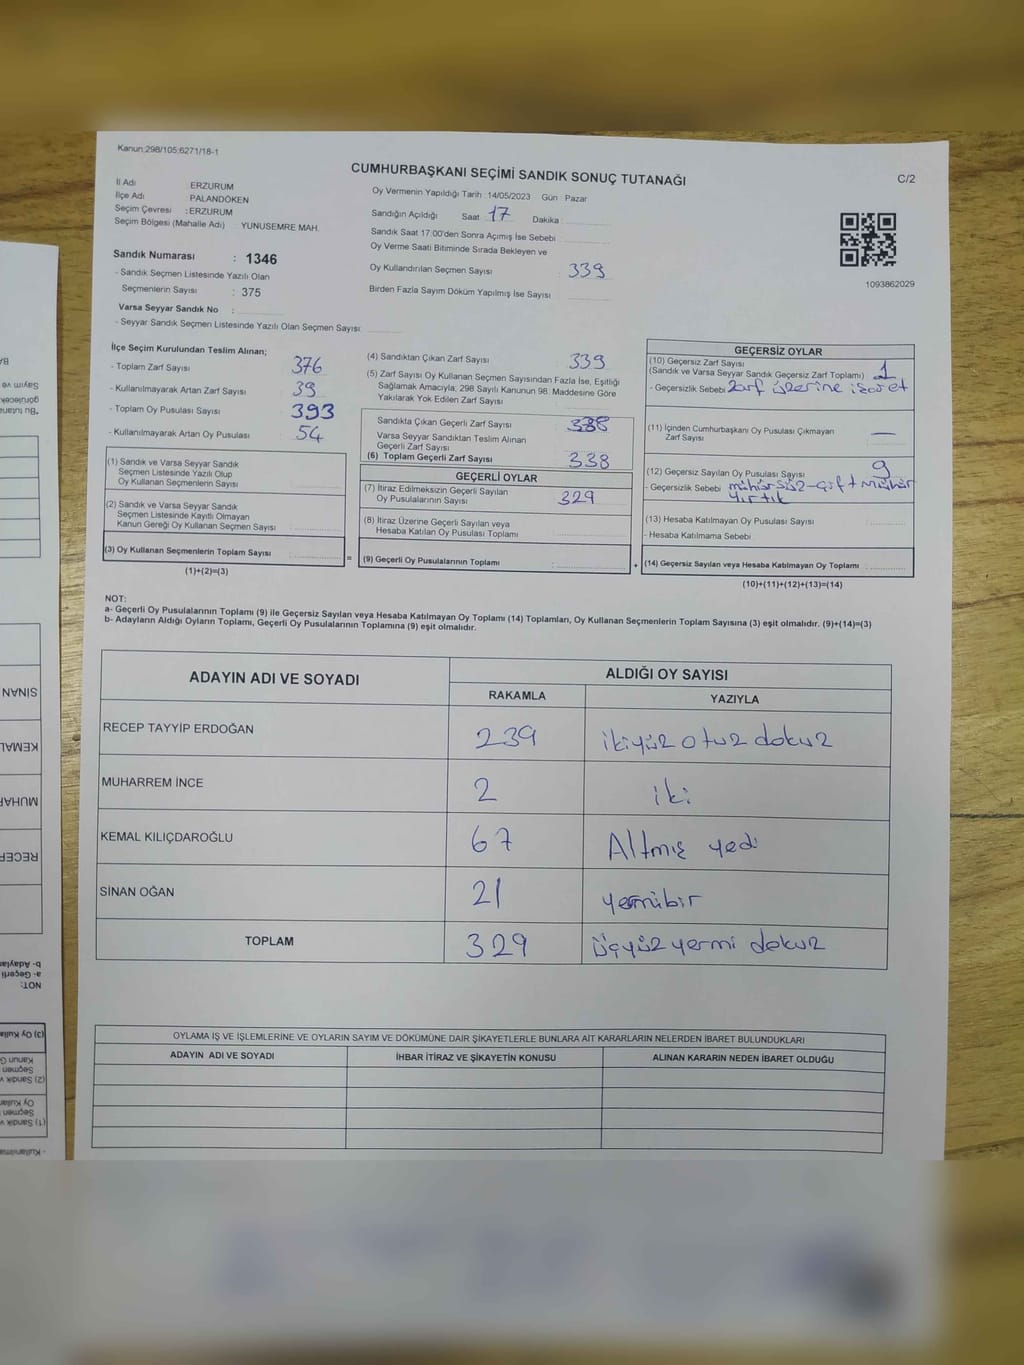 Kanun:298/105:6271/18-1
CUMHURBAŞKANI SEÇİMİ SANDIK SONUÇ TUTANAĞI
C/2
İl Adı : ERZURUM
İlçe Adı : PALANDÖKEN
Seçim Çevresi : ERZURUM
Seçim Bölgesi (Mahalle Adı) YUNUSEMRE MAH.
Sandık Numarası : 1346
- Sandık Seçmen Listesinde Yazılı Olan
Seçmenlerin Sayısı : 375
Varsa Seyyar Sandık No :
- Seyyar Sandık Seçmen Listesinde Yazılı Olan Seçmen Sayısı:
Oy Vermenin Yapıldığı Tarih : 14/05/2023 Gün : Pazar
Sandığın Açıldığı Saat 17 Dakika :
Sandık Saat 17:00'den Sonra Açımış İse Sebebi
Oy Verme Saati Bitiminde Sırada Bekleyen ve
Oy Kullandırılan Seçmen Sayısı : 339
Birden Fazla Sayım Döküm Yapılmış İse Sayısı
1093862029
İlçe Seçim Kurulundan Teslim Alınan;
- Toplam Zarf Sayısı 376
- Kullanılmayarak Artan Zarf Sayısı 39
- Toplam Oy Pusulası Sayısı 393
- Kullanılmayarak Artan Oy Pusulası 54
(1) Sandık ve Varsa Seyyar Sandık
Seçmen Listesinde Yazılı Olup
Oy Kullanan Seçmenlerin Sayısı
(2) Sandık ve Varsa Seyyar Sandık
Seçmen Listesinde Kayıtlı Olmayan
Kanun Gereği Oy Kullanan Seçmen Sayısı :
(3) Oy Kullanan Seçmenlerin Toplam Sayısı :
(1)+(2)=(3)
(4) Sandıktan Çıkan Zarf Sayısı 339
(5) Zarf Sayısı Oy Kullanan Seçmen Sayısından Fazla İse, Eşitliği
Sağlamak Amacıyla; 298 Sayılı Kanunun 98. Maddesine Göre
Yakılarak Yok Edilen Zarf Sayısı :
Sandıkta Çıkan Geçerli Zarf Sayısı : 338
Varsa Seyyar Sandıktan Teslim Alınan
Geçerli Zarf Sayısı
(6) Toplam Geçerli Zarf Sayısı : 338
GEÇERLİ OYLAR
(7) İtiraz Edilmeksizin Geçerli Sayılan
Oy Pusulalarının Sayısı : 329
(8) İtiraz Üzerine Geçerli Sayılan veya
Hesaba Katılan Oy Pusulası Toplamı :
= (9) Geçerli Oy Pusulalarının Toplamı :
GEÇERSİZ OYLAR
(10) Geçersiz Zarf Sayısı
(Sandık ve Varsa Seyyar Sandık Geçersiz Zarf Toplamı) 1
- Geçersizlik Sebebi Zarf üzerine işaret
(11) İçinden Cumhurbaşkanı Oy Pusulası Çıkmayan
Zarf Sayısı : —
(12) Geçersiz Sayılan Oy Pusulası Sayısı 9
- Geçersizlik Sebebi mühürsüz-çift mühür
yırtık
(13) Hesaba Katılmayan Oy Pusulası Sayısı
- Hesaba Katılmama Sebebi
+ (14) Geçersiz Sayılan veya Hesaba Katılmayan Oy Toplamı :
(10)+(11)+(12)+(13)=(14)
NOT:
a- Geçerli Oy Pusulalarının Toplamı (9) ile Geçersiz Sayılan veya Hesaba Katılmayan Oy Toplamı (14) Toplamları, Oy Kullanan Seçmenlerin Toplam Sayısına (3) eşit olmalıdır. (9)+(14)=(3)
b- Adayların Aldığı Oyların Toplamı, Geçerli Oy Pusulalarının Toplamına (9) eşit olmalıdır.
ADAYIN ADI VE SOYADI
ALDIĞI OY SAYISI
RAKAMLA YAZIYLA
RECEP TAYYİP ERDOĞAN 239 ikiyüz otuz dokuz
MUHARREM İNCE 2 iki
KEMAL KILIÇDAROĞLU 67 Altmış yedi
SİNAN OĞAN 21 yermibir
TOPLAM 329 üçyüz yermi dokuz
OYLAMA İŞ VE İŞLEMLERİNE VE OYLARIN SAYIM VE DÖKÜMÜNE DAİR ŞİKAYETLERLE BUNLARA AİT KARARLARIN NELERDEN İBARET BULUNDUKLARI
ADAYIN ADI VE SOYADI İHBAR İTİRAZ VE ŞİKAYETİN KONUSU ALINAN KARARIN NEDEN İBARET OLDUĞU